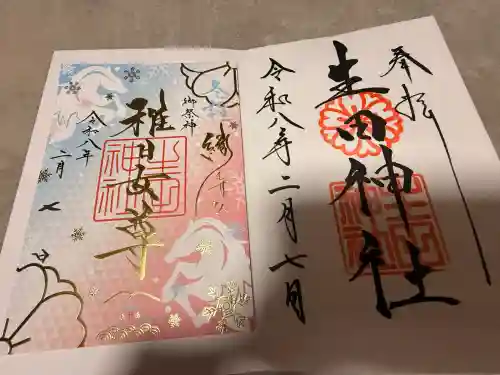 奉拝
生田神社
令和八年二月七日
御祭神
稚日女尊
令和八年
二月
生田
神社